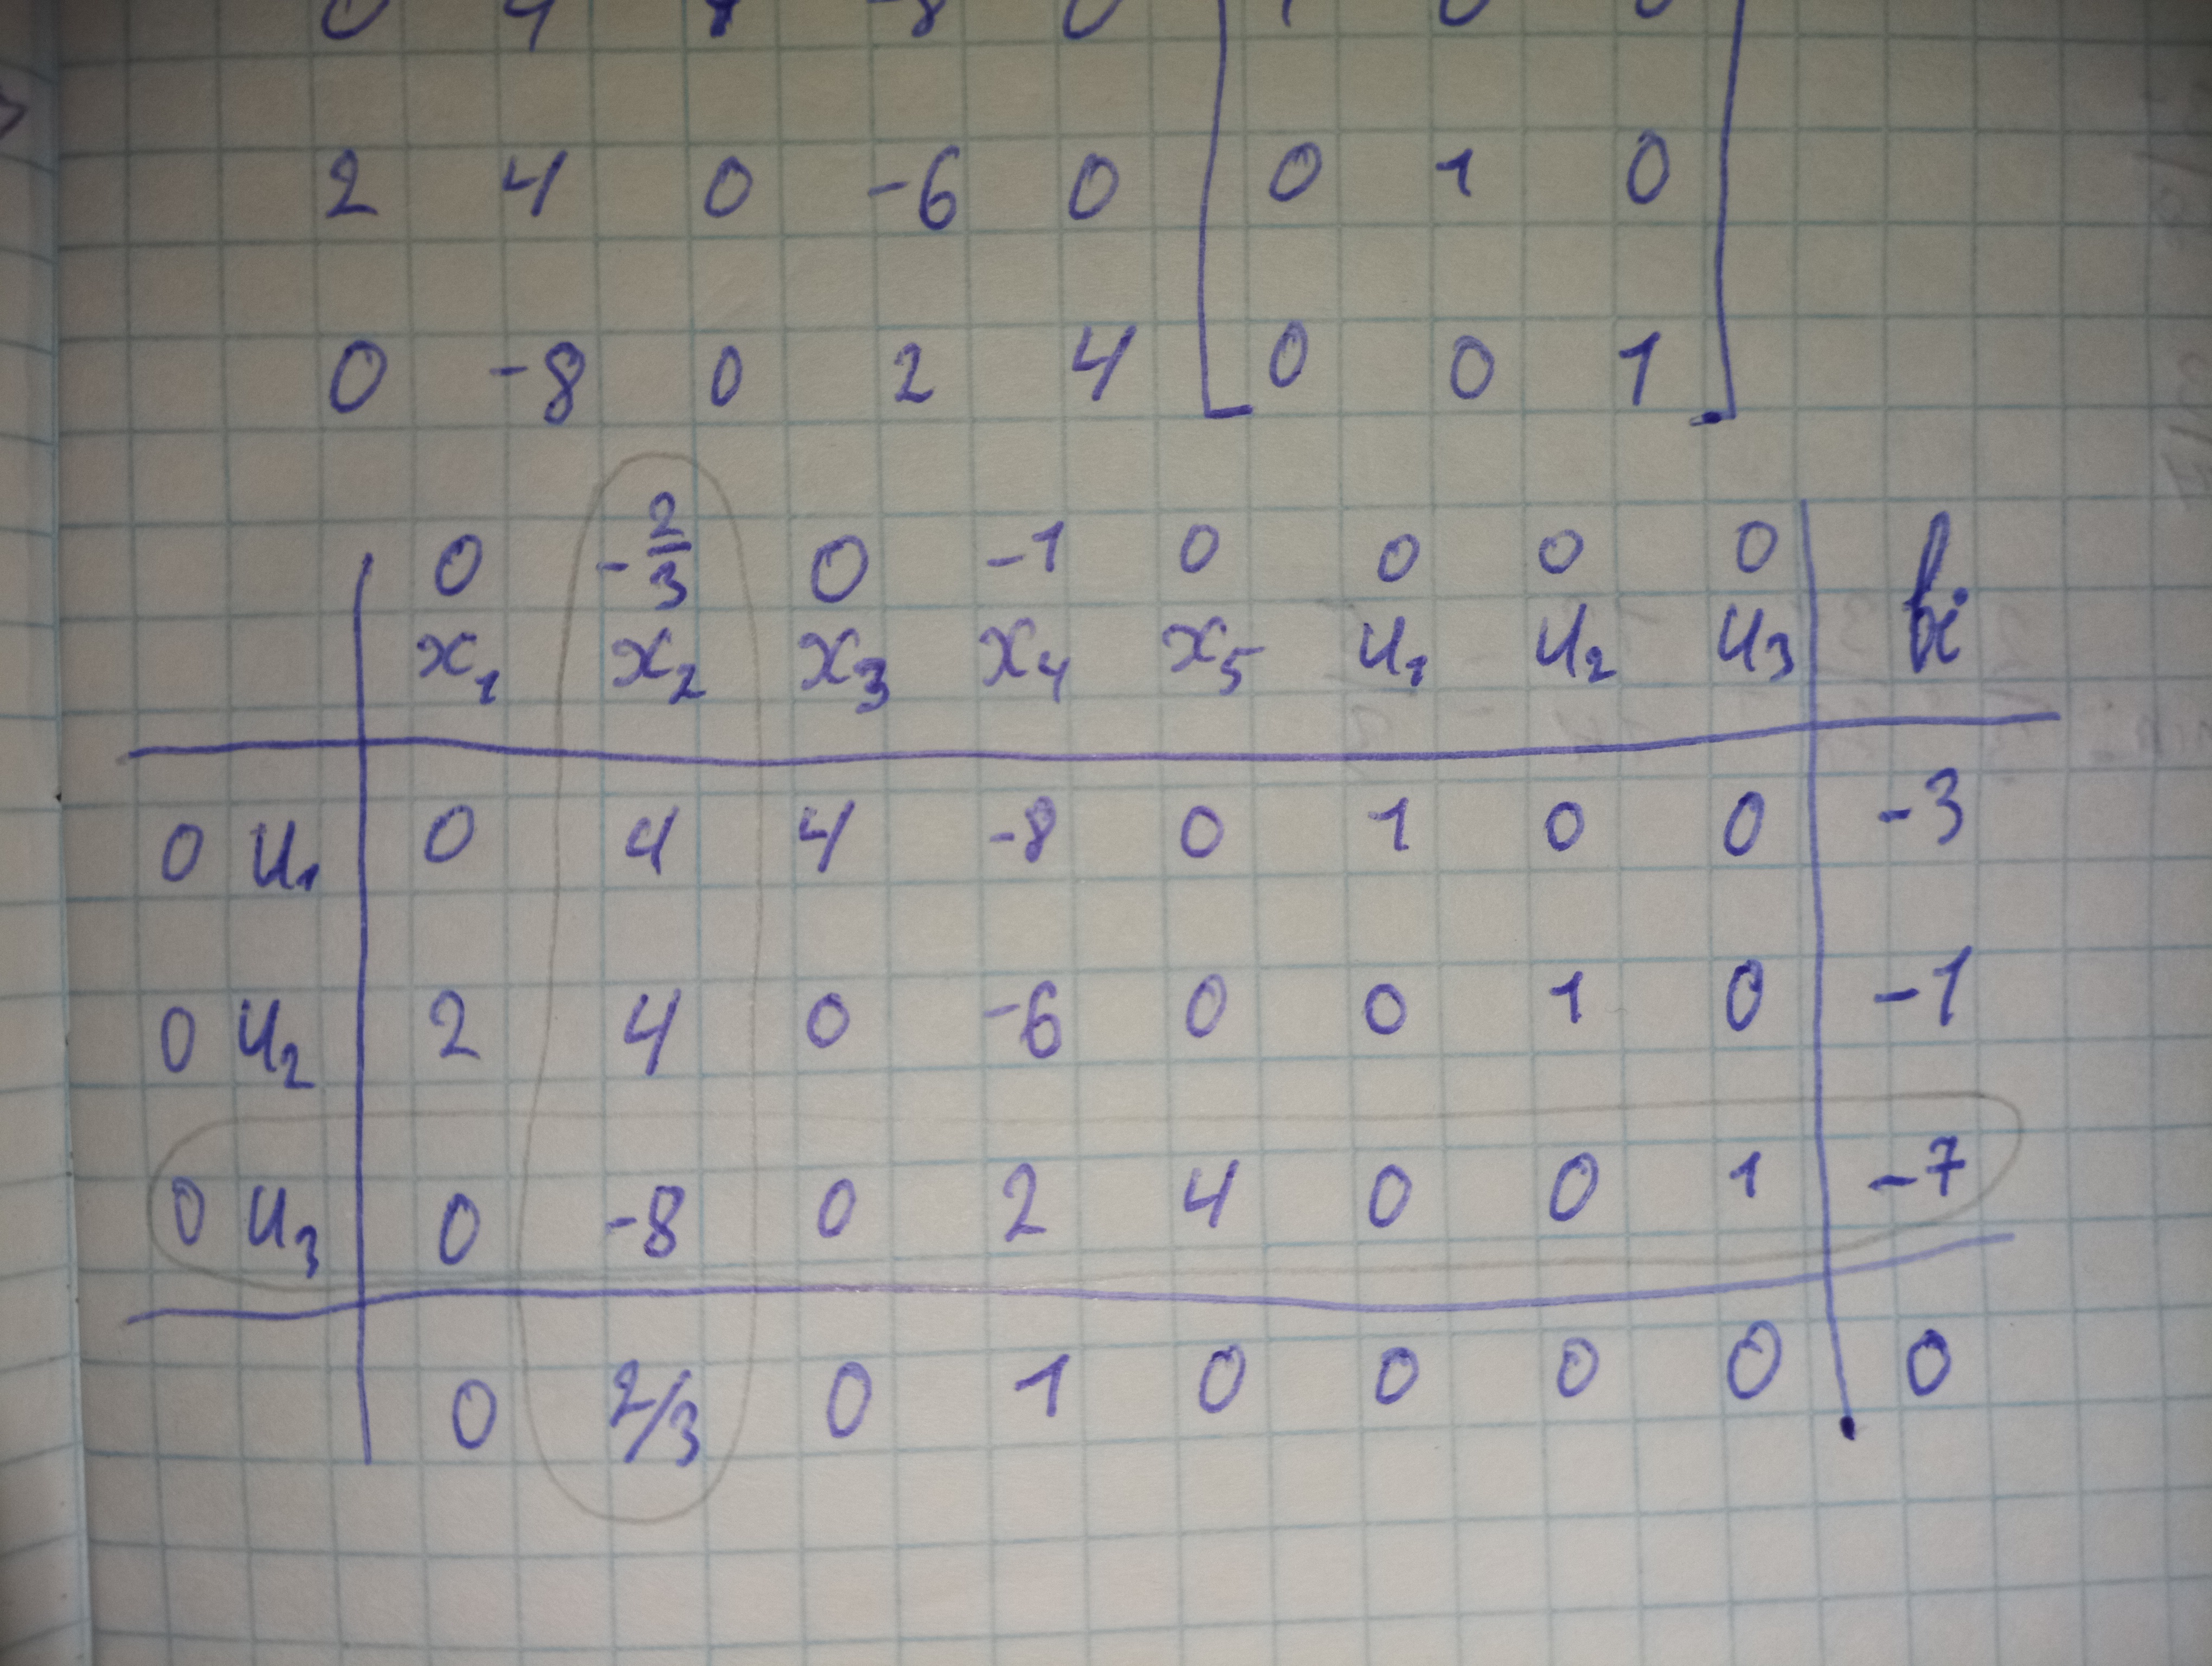 0 4 4 -8 0 1 0 0
2 4 0 -6 0 0 1 0
0 -8 0 2 4 0 0 1
0 -2/3 0 -1 0 0 0 0
x₁ x₂ x₃ x₄ x₅ u₁ u₂ u₃ bi
0 u₁ 0 4 4 -8 0 1 0 0 -3
0 u₂ 2 4 0 -6 0 0 1 0 -1
0 u₃ 0 -8 0 2 4 0 0 1 -7
0 2/3 0 1 0 0 0 0 0